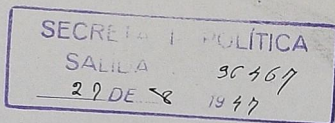 SECRETARÍA POLÍTICA
SALIDA 36467
27 DE 8 1947